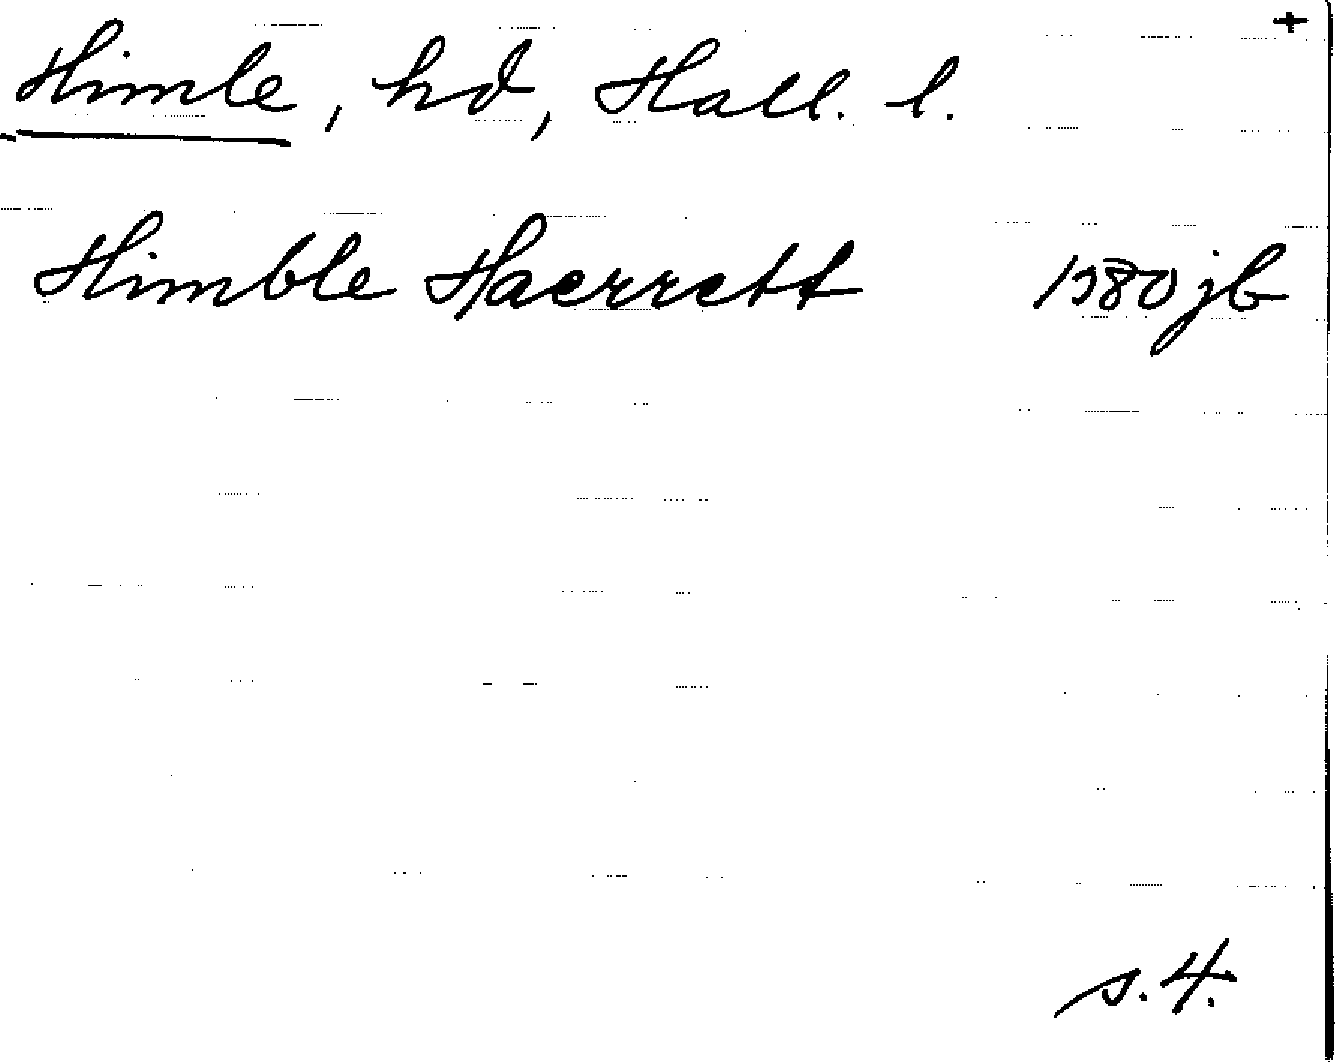 +
Himle, hd, Hall. l.
Himble Haerrett 1580 jb
s. 4.